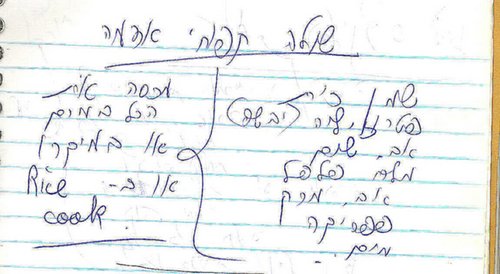 תפוחי אדמה
שמן
(יבשה)
אב. שום
מלח פלפל
אב. מרק
פפריקה
מים.
מכסה את
הכל במים
או במיקרו
או ב-
cook.